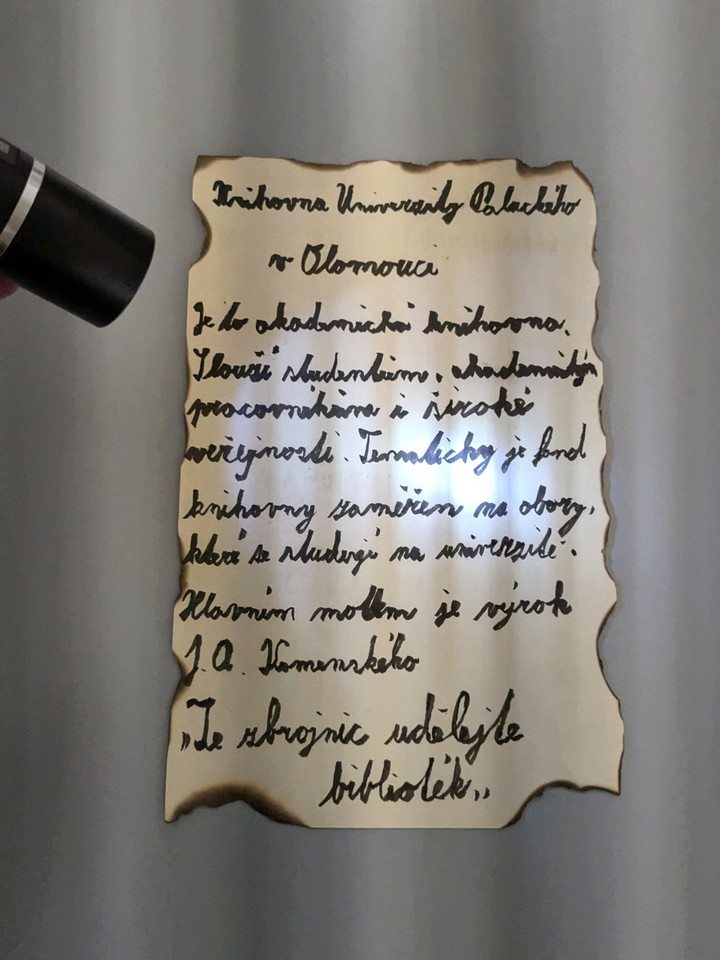 Knihovna Univerzity Palackého
v Olomouci
Je to akademická knihovna.
Slouží studentům, akademickým
pracovníkům i široké
veřejnosti. Tematicky je fond
knihovny zaměřen na obory,
které se studují na univerzitě.
Hlavním mottem je výrok
J. A. Komenského
„Ze zbrojnic udělejte
biblioték„